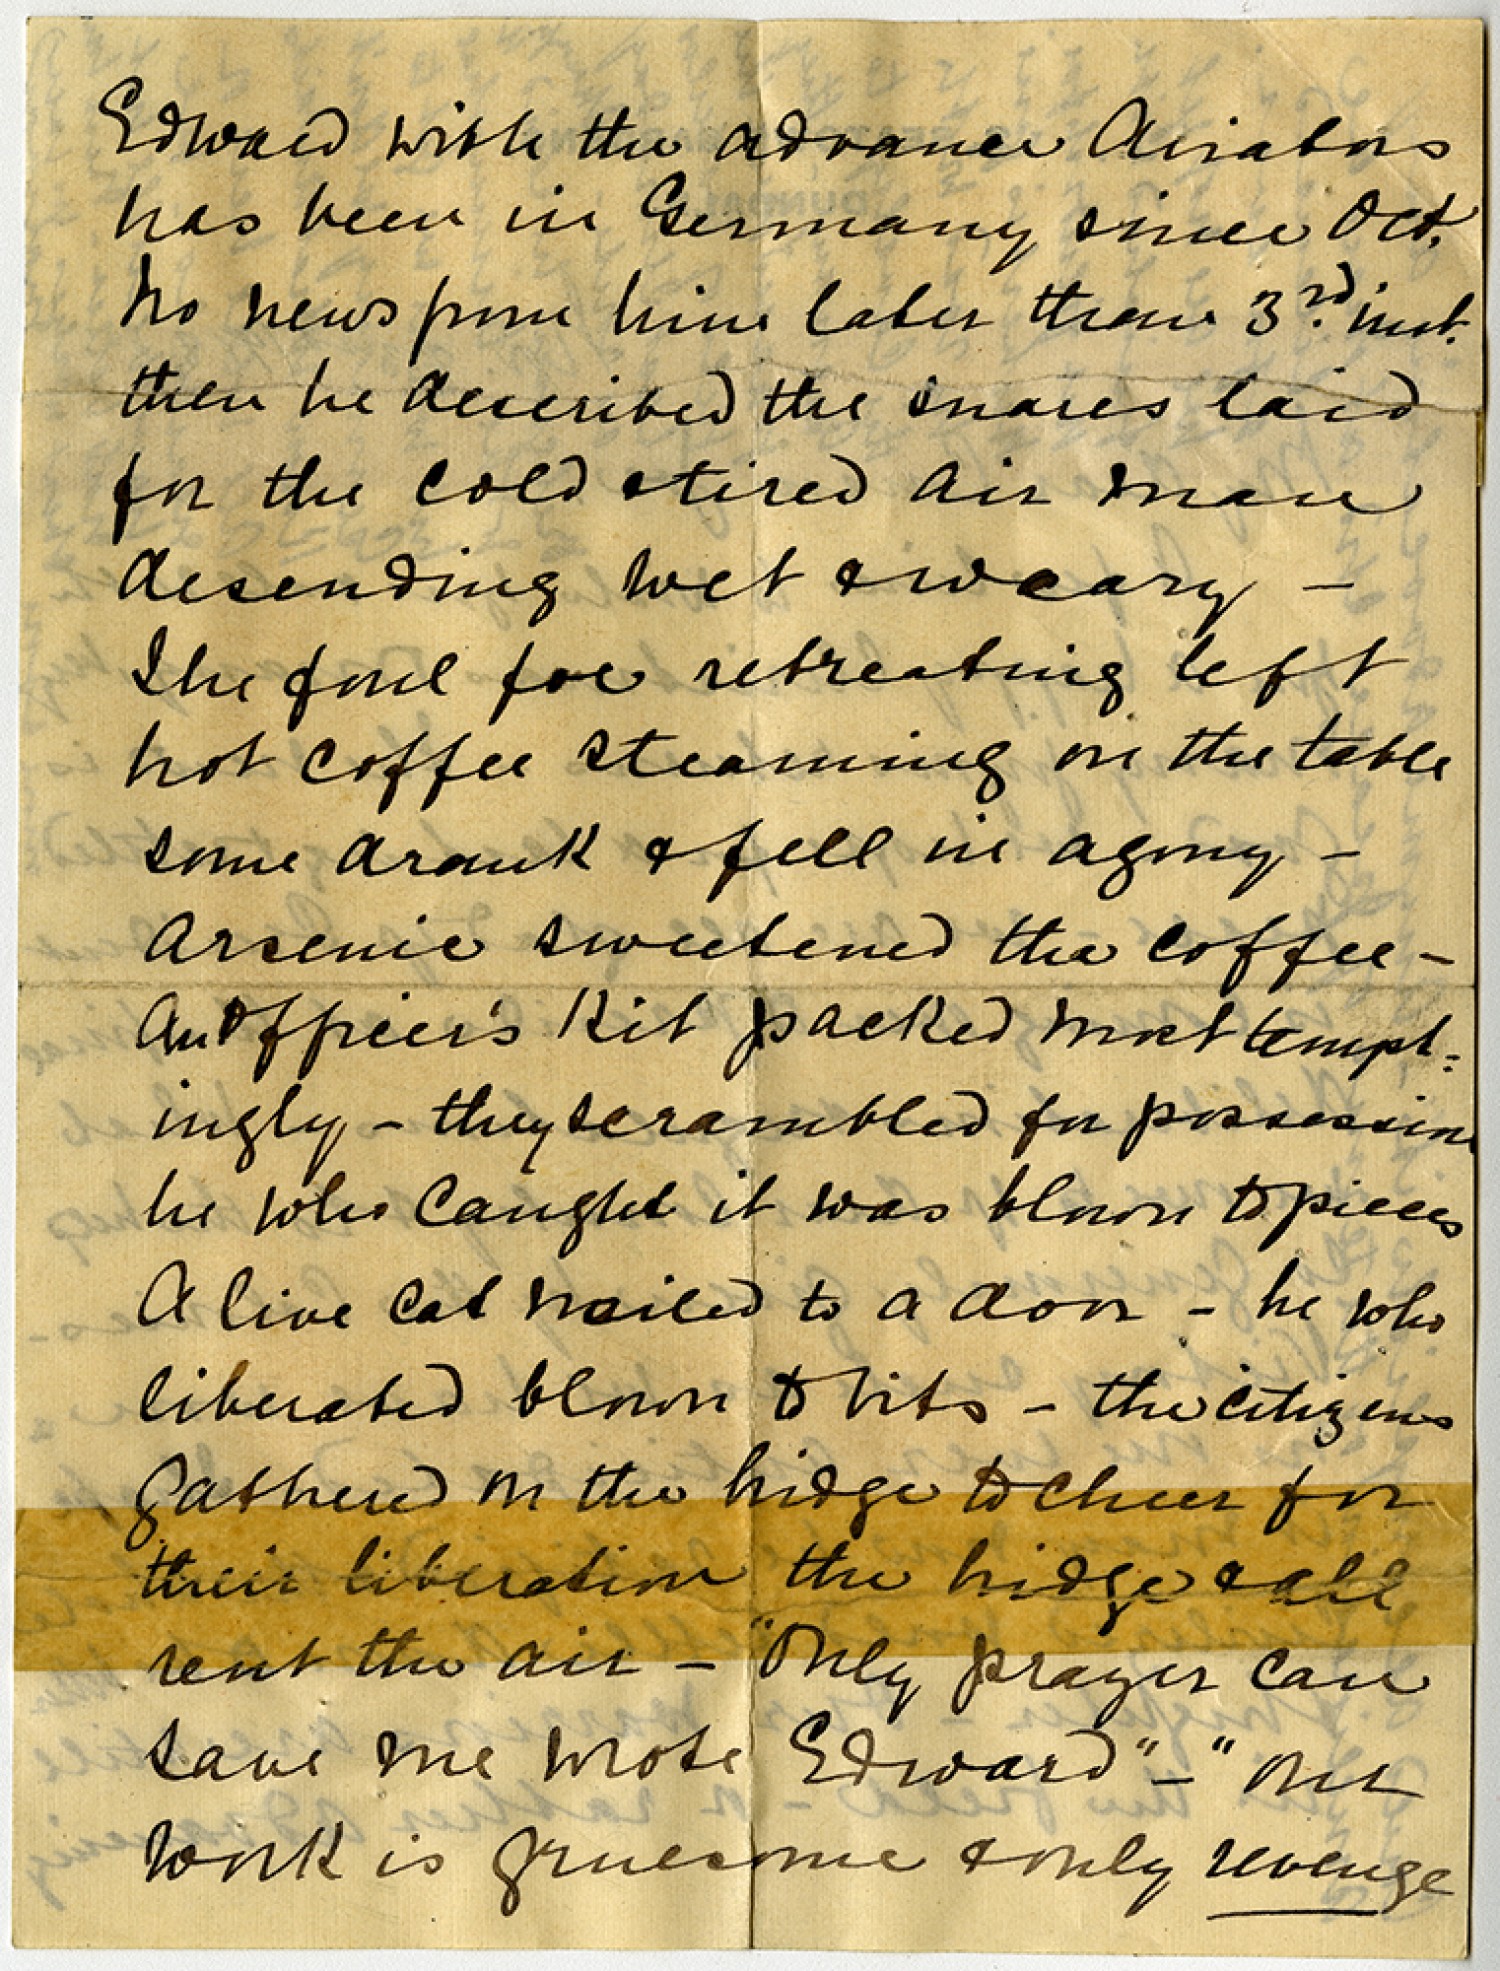 Edward with the advance Aviators
has been in Germany since Oct.
No news from him later than 3rd inst.
then he described the snares laid
for the cold & tired air man
desending wet & weary –
The foul foe retreating left
hot coffee steaming on the table
some drank & fell in agony –
Arsenic sweetened the coffee –
An Officer's Kit packed most tempt=
ingly – they scrambled for possession
he who caught it was blown to pieces
A live cat nailed to a door – he who
liberated blown to bits – the citizens
gathered on the bridge to cheer for
their liberation the bridge & all
rent the air – "Only prayer can
save me wrote Edward" – " our
work is gruesome & only revenge